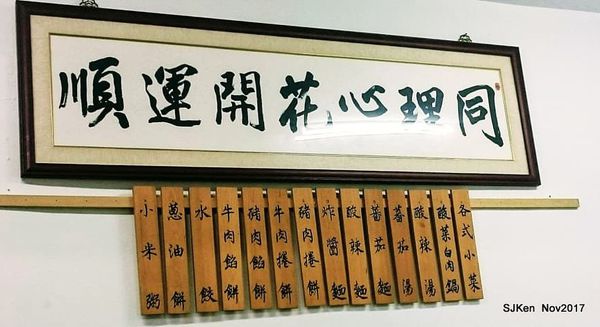 同理心花開運順
各式小菜
酸菜白肉鍋
酸辣湯
蕃茄湯
蕃茄麵
酸辣麵
炸醬麵
豬肉捲餅
牛肉捲餅
豬肉餡餅
牛肉餡餅
水餃
蔥油餅
小米粥
SJKen Nov2017